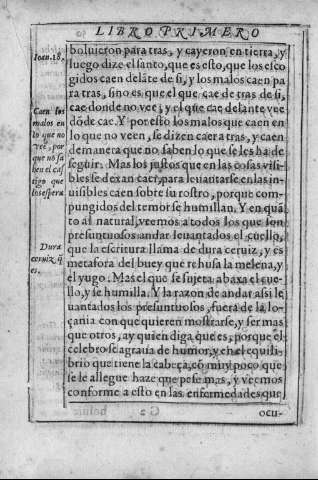 LIBRO PRIMERO
Ioan. 18.
boluieron para tras, y cayeron en tierra, y
luego dize el santo, que es esto, que los esco
gidos caen delãte de si, y los malos caen pa
ra tras, sino es que el que cae de tras de si,
cae donde no vee; y el que cae delante vee
dõde cae. Y por esto los malos que caen en
lo que no veen, se dizen caer a tras, y caen
de manera que no saben lo que se les ha de
seguir. Mas los justos que en las cosas visi-
bles se dexan caer, para leuantarse en las in-
uisibles caen sobre su rostro, porque com-
pungidos del temor se humillan. Y en quã
to al natural, veemos a todos los que son
presuntuosos andar leuantados el cuello,
que la escritura llama de dura ceruiz, y es
metafora del buey que rehusa la melena, y
el yugo. Mas el que se sujeta abaxa el cue-
llo, y se humilla. Y la razon de andar assi le
uantados los presuntuosos, fuera de la lo-
çania con que quieren mostrarse, y ser mas
que otros, ay quien diga que es, porque el
celebro se agraua de humor, y en el equili-
brio que tiene la cabeça, cõ muy poco que
se le allegue haze que pese mas, y veemos
conforme a esto en las enfermedades que
ocu-
Caen los
malos en
lo que no
vee, por
que no sa
ben el cas
tigo que
los espera
Dura
ceruiz q̃
es.